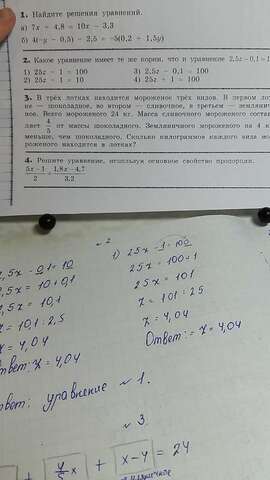 1. Найдите решения уравнений.
а) 7x − 4,8 = 10x − 3,3
б) 4(− y − 0,5) − 2,5 = −5(0,2 + 1,5y)
2. Какое уравнение имеет те же корни, что и уравнение 2,5x − 0,1 = 1
1) 25x − 1 = 100 3) 2,5x − 0,1 = 100
2) 25x − 1 = 10 4) 25x + 1 = 100
3. В трёх лотках находится мороженое трёх видов. В первом лот
ке — шоколадное, во втором — сливочное, в третьем — землянич
ное. Всего мороженого 24 кг. Масса сливочного мороженого состав
ляет 4/5 от массы шоколадного. Земляничного мороженого на 4 к
меньше, чем шоколадного. Сколько килограммов каждого вида мо
роженого находится в лотках?
4. Решите уравнение, используя основное свойство пропорции.
5x − 1 1,8x − 4,7
2 3,2
№2
,5x − 0,1 = 10
,5x = 10 + 0,1
,5x = 10,1
x = 10,1 : 2,5
x = 4,04
Ответ: x = 4,04
1) 25x − 1 = 100
25x = 100 + 1
25x = 101
x = 101 : 25
x = 4,04
Ответ: x = 4,04
твет: уравнение №1.
№3.
+ 4/5 x + x − 4 = 24